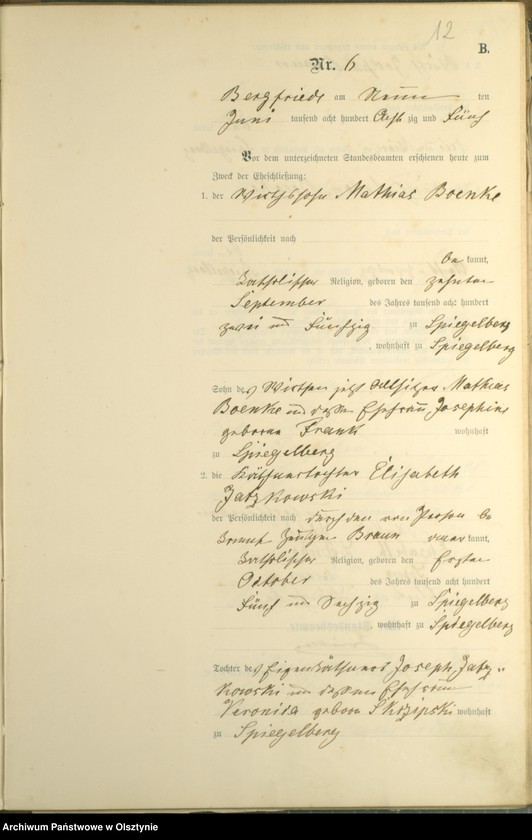 12
B.
Nr. 6
Bergfriede am Neun ten
Juni tausend acht hundert Acht zig und Fünf
Vor dem unterzeichneten Standesbeamten erschienen heute zum
Zweck der Eheschließung:
1. der Wirthssohn Mathias Boenke
der Persönlichkeit nach
be kannt,
katholischer Religion, geboren den zehnten
September des Jahres tausend acht hundert
zwei und Fünfzig zu Spiegelberg
, wohnhaft zu Spiegelberg
Sohn des Wirthen jetzt Altsitzer Mathias
Boenke und dessen Ehefrau, Josephine
geborene Frank wohnhaft
zu Spiegelberg
2. die Käthnertochter Elisabeth
Jatzkowski
der Persönlichkeit nach durch den von Person be
kannt Zeugen Braun aner kannt,
katholischer Religion, geboren den Ersten
October des Jahres tausend acht hundert
Fünf und Sechzig zu Spiegelberg
, wohnhaft zu Spiegelberg
Tochter des Eigenkäthners Joseph Jatz-
kowski und dessen Ehefrau
Veronika geborn Skrzipski wohnhaft
zu Spiegelberg
Archiwum Państwowe w Olsztynie